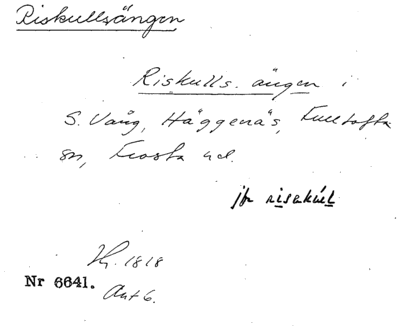 Riskullsängen
Riskulls. ängen i
S. Vång, Häggenäs, Fulltofta
sn, Frosta hd.
jfr riskúll
1818
Nr 6641.
Ant 6.